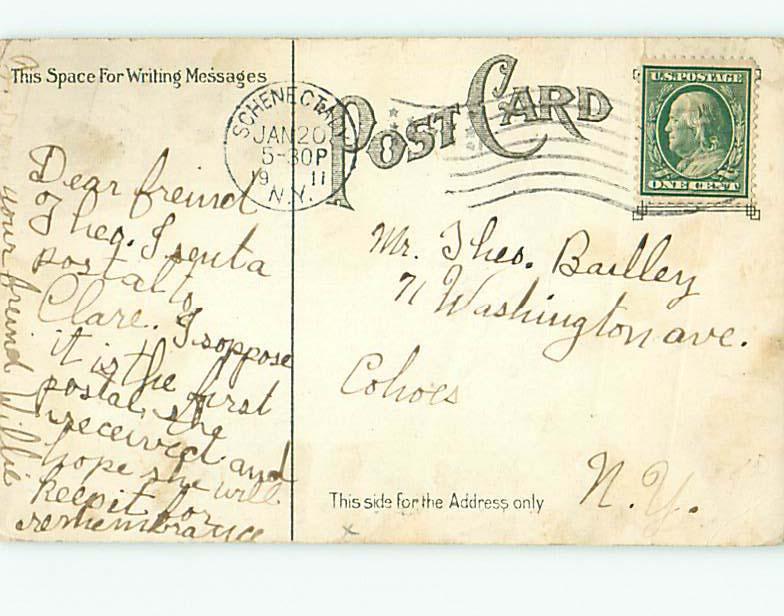 This Space For Writing Messages
POST CARD
U.S. POSTAGE
ONE CENT
SCHENECTADY
JAN 20
5-30P
19 11
N.Y.
Dear freind
Theo. I sent a
postal to
Clare. I soppose
it is the first
postal she
received and
hope she will
keep it for
remembrance
your freind Willie
Mr. Theo. Bailley
71 Washington ave.
Cohoes
N.Y.
This side for the Address only